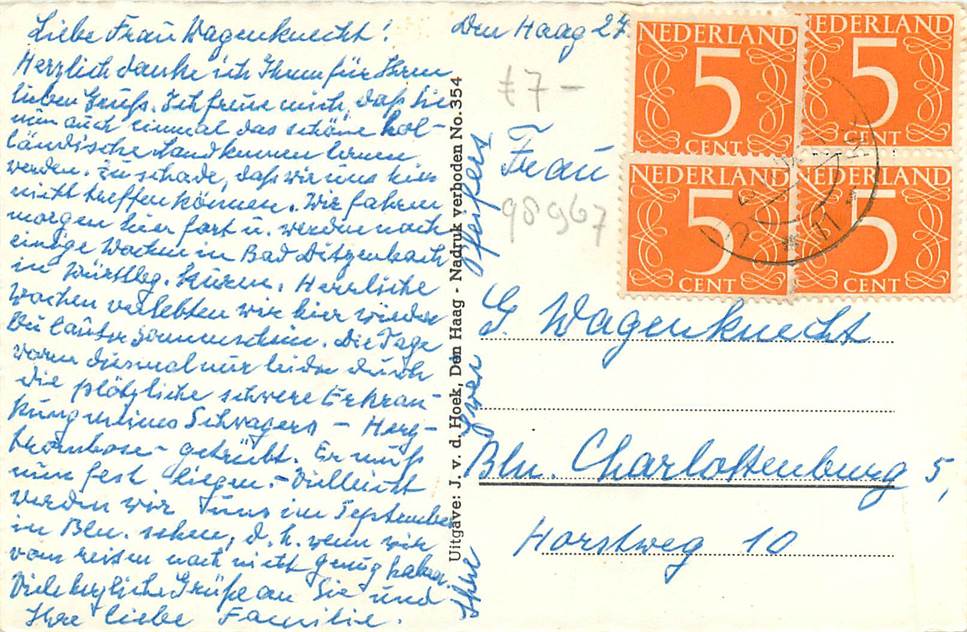 Liebe Frau Wagenknecht!
Herzlich danke ich Ihnen für Ihren
lieben Gruß. Ich freue mich, daß Sie
nun auch einmal das schöne hol-
ländische Land kennen lernen
werden. Zu schade, daß wir uns hier
nicht treffen können. Wir fahren
morgen hier fort u. werden noch
einige Wochen in Bad Ditzenbach
in Württbg. kuren. Herrliche
Wochen verlebten wir hier wieder
bei lauter Sonnenschein. Die Tage
waren diesmal nur leider durch
die plötzliche schwere Erkran-
kung meines Schwagers - Herz-
thrombose - getrübt. Er muß
nun fest liegen. - Vielleicht
werden wir uns im September
in Bln. sehen, d. h. wenn wir
vom reisen noch nicht genug haben.
Viele herzliche Grüße an Sie und
Ihre liebe Familie.
Ihre
Uitgave: J. v. d. Hoek, Den Haag - Nadruk verboden No. 354
Den Haag 27
f7-
Frau
98967
G. Wagenknecht
Bln. Charlottenburg 5,
Horstweg 10
NEDERLAND
5
CENT
NEDERLAND
5
CENT
NEDERLAND
5
CENT
NEDERLAND
5
CENT